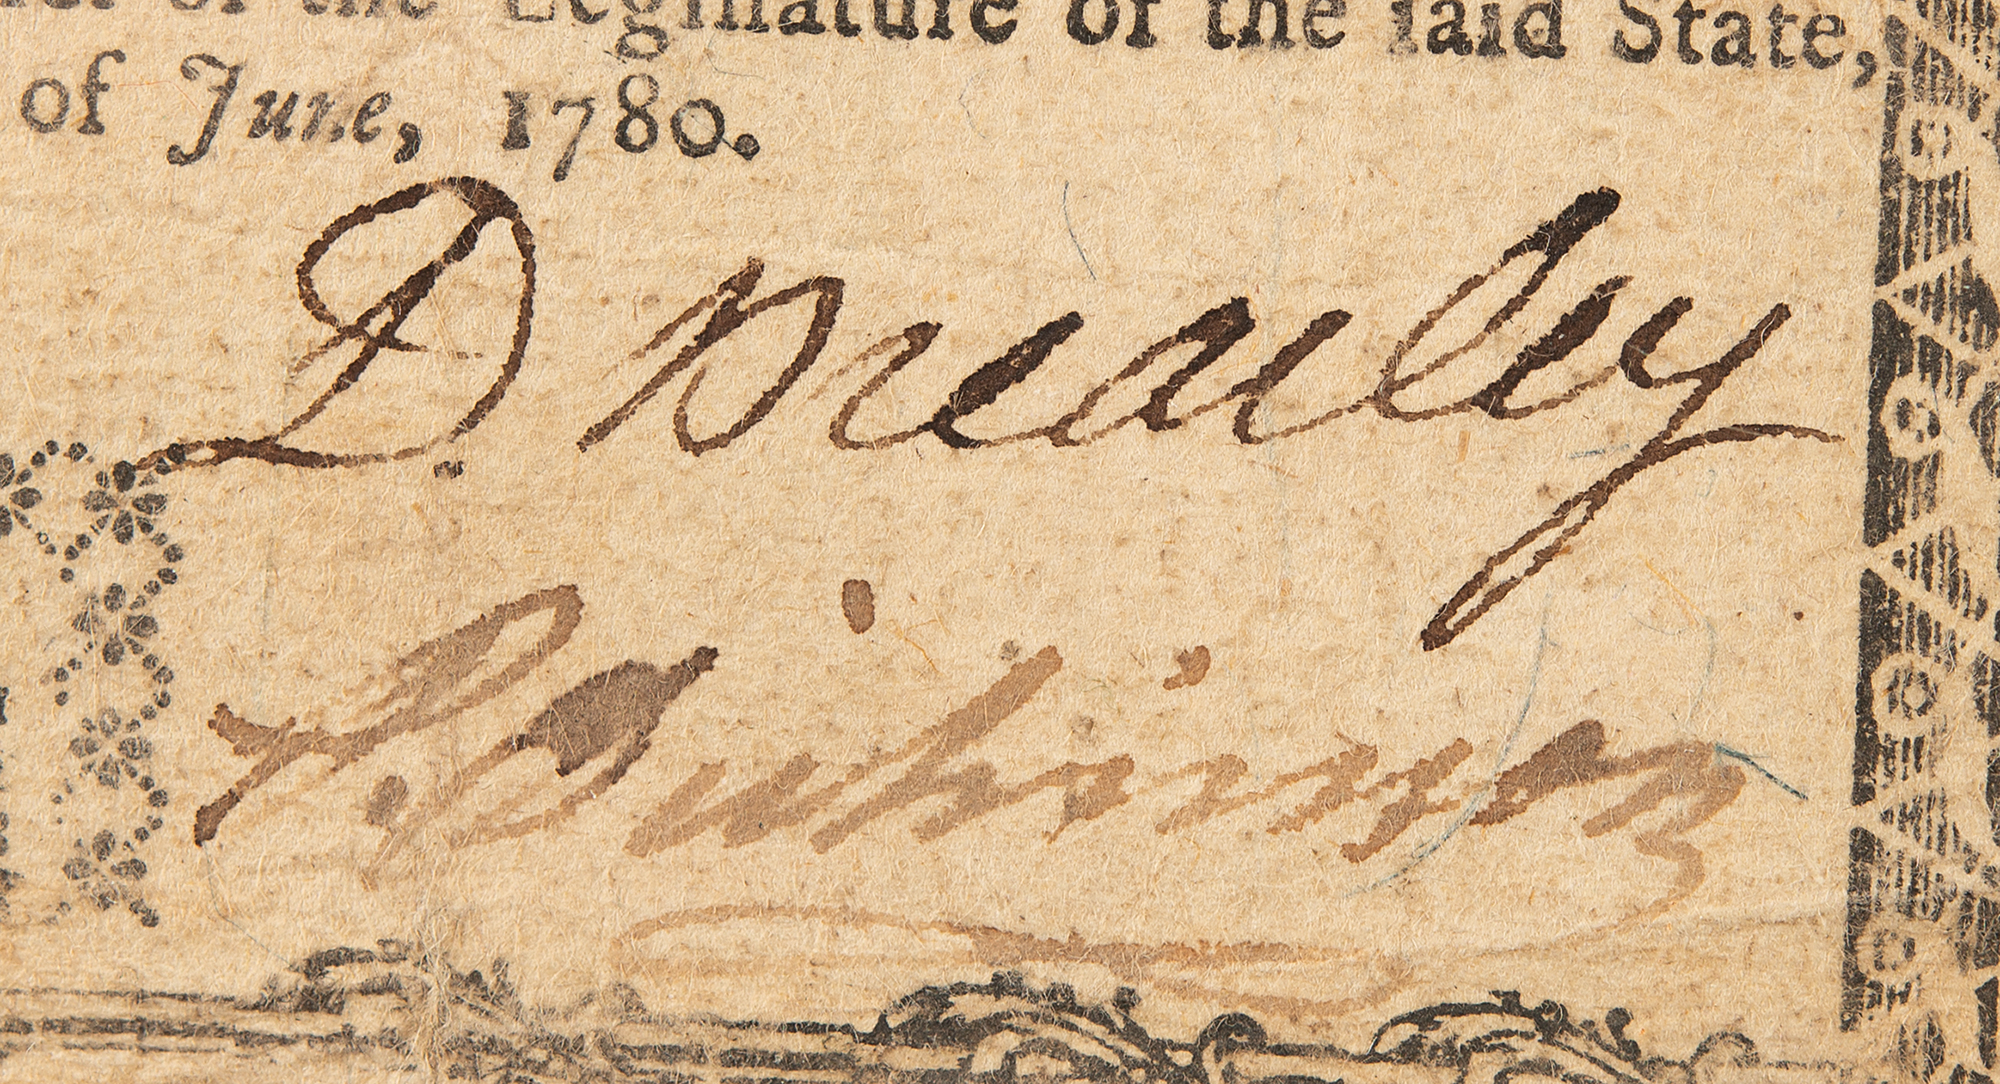 of the Legiſlature of the ſaid State,
of June, 1780.
D. Brearley
P. Dickinson